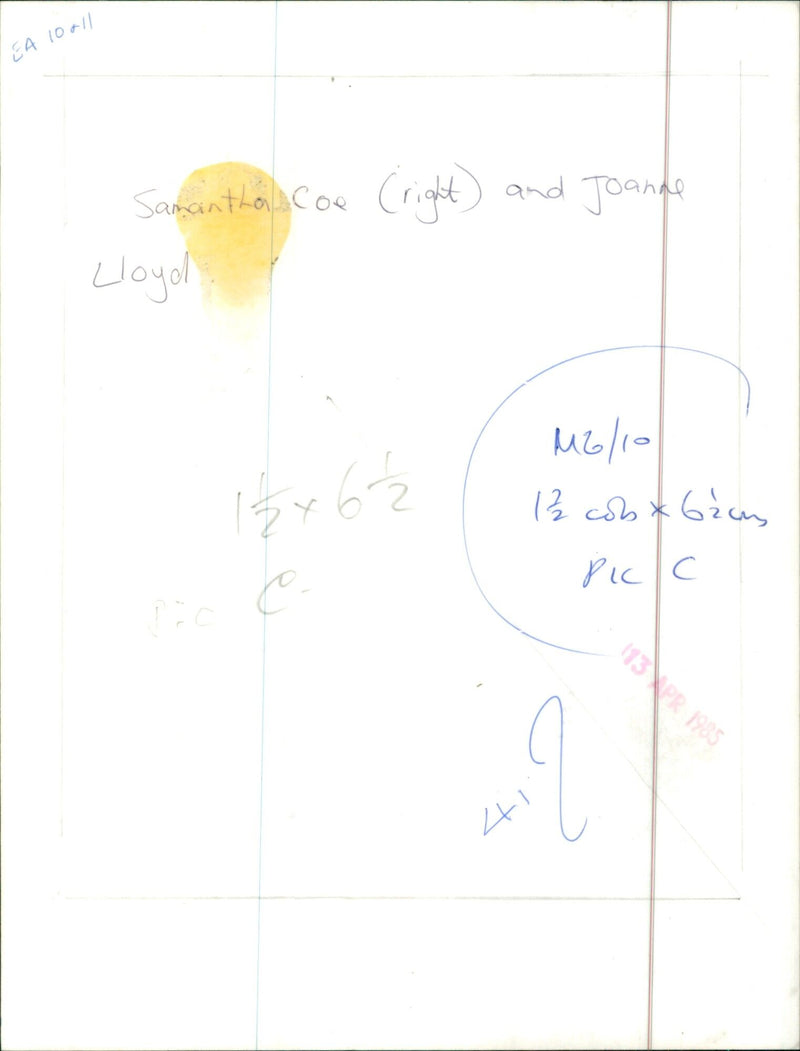 EA 10+11
Samantha Coe (right) and Joanne
Lloyd.
1 1/2 x 6 1/2
PIC C.
M6/10
cols x 6 1/2 cms
PIC C
13 APR 1985